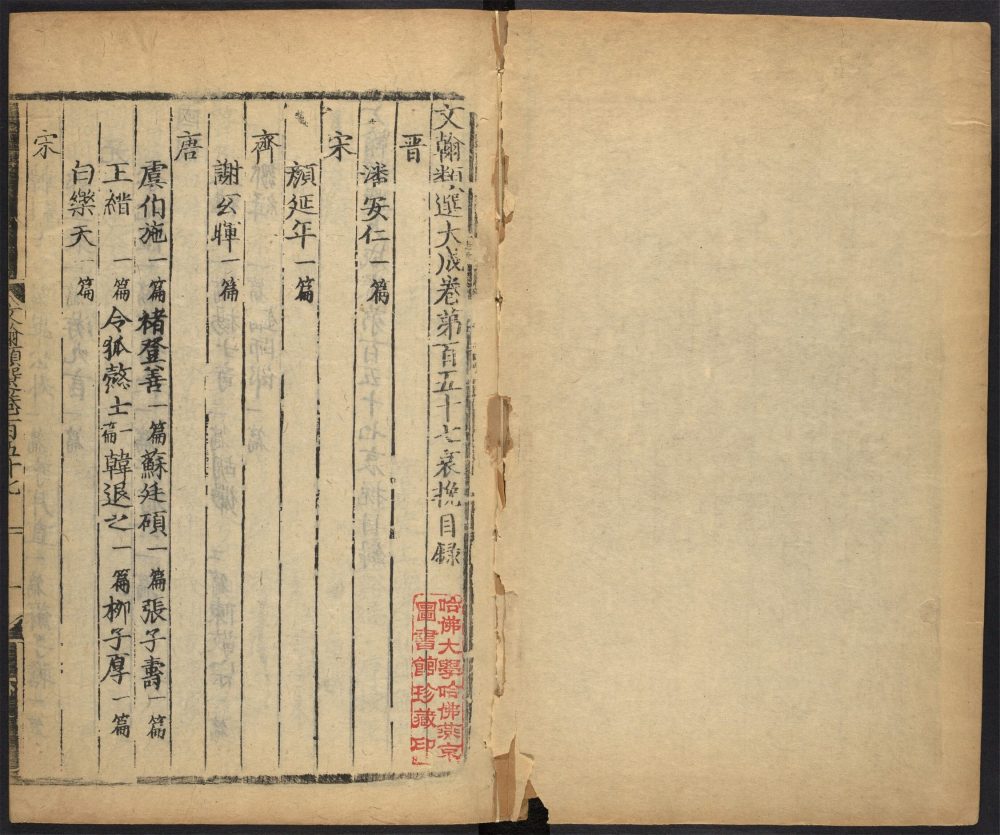 文翰類選大成卷第百五十七哀挽目録
晋
潘安仁一篇
宋
顔延年一篇
齊
謝公暉一篇
唐
虞伯施一篇褚登善一篇蘇廷碩一篇張子壽一篇
王縉一篇令狐愨士一篇韓退之一篇柳子厚一篇
白樂天一篇
宋
文翰類選卷一百五十七
哈佛大學哈佛燕京
圖書館珍藏印